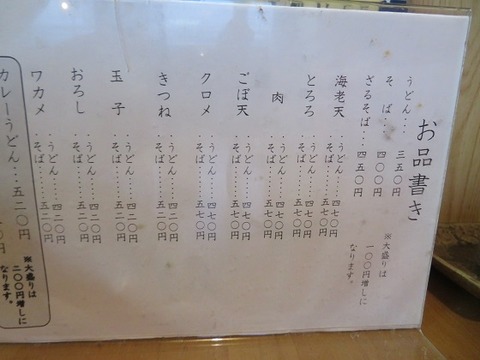 お品書き
うどん‥三五〇円
そ ば‥四〇〇円
ざるそば‥四五〇円
※大盛りは
一〇〇円増しに
なります。
海老天
・うどん‥‥四七〇円
・そば‥‥五七〇円
とろろ
・うどん‥‥四七〇円
・そば‥‥五七〇円
肉
・うどん‥‥四七〇円
・そば‥‥五七〇円
ごぼ天
・うどん‥‥四七〇円
・そば‥‥五七〇円
クロメ
・うどん‥‥四七〇円
・そば‥‥五七〇円
きつね
・うどん‥‥四二〇円
・そば‥‥五二〇円
玉 子
・うどん‥‥四二〇円
・そば‥‥五二〇円
おろし
・うどん‥‥四二〇円
・そば‥‥五二〇円
ワカメ
・うどん‥‥四二〇円
・そば‥‥五二〇円
カレーうどん‥‥五二〇円
※大盛りは
二〇〇円増しに
なります。